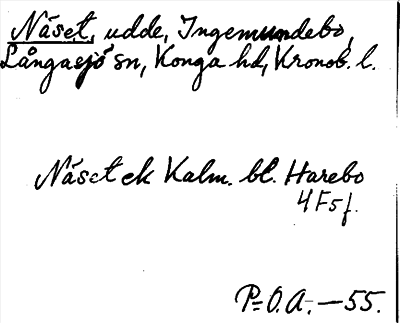 Näset, udde, Ingemundebo,
Långasjö sn, Konga hd, Kronob. l.
Näset ek Kalm. bl. Harebo
4F5f.
P-O.A.-55.